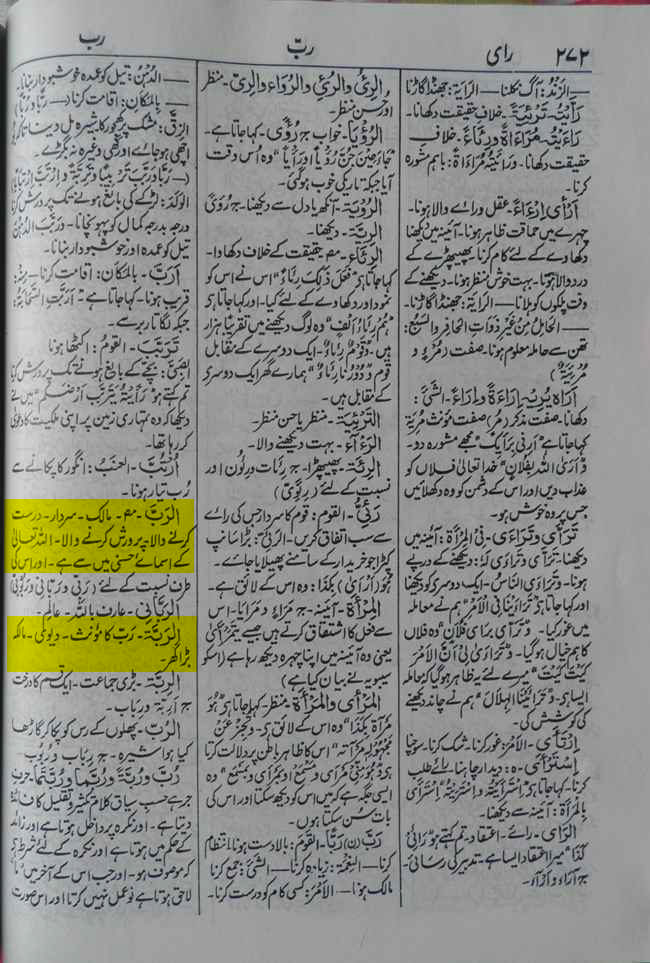 ۲۷۲
رای
ربّ
رب
— الزَنْدُ: آگ نکلنا — الرایَةَ: جھنڈا گاڑنا
رَأَیْتُہ۔ تَرْئِیَةً۔ خلاف حقیقت دکھانا۔
رَاءَیْتُہ۔ مُرَاءَاةً وَرِئَاءً۔ خلاف
حقیقت دکھانا۔ وَرَائَیْتُہ مُرَاءَاةً: باہم مشورہ
کرنا۔
اَرْأٰی اِرْءَاءً۔ عقل و رائے والا ہونا۔
چہرے میں حماقت ظاہر ہونا۔ آئینہ میں دیکھنا
دکھاوے کے لئے کام کرنا۔ پھیپھڑے کے
درد والا ہونا۔ بہت خوش منظر ہونا۔ دیکھنے کے
وقت پلکوں کو ہلانا — الرایَةَ: جھنڈا گاڑنا۔
— الحَامِلُ مِنْ غَیْرِ ذَوَاتِ الحَافِرِ وَالسَّبُعِ:
تھن سے حاملہ معلوم ہونا۔ صفت (مُرْءٍ و
مُرْئِیَةٌ)
اَرَاہُ یُرِیْہِ اِرَاءَةً وَاِرَاءً۔ الشیَٔ:
دکھانا۔ صفت مذکر (مُرٍ) صفت مؤنث مُرِیَة
کہا جاتا ہے "اَرِنِیْ بِرَأْیِکَ" مجھے مشورہ دو۔
وَ"اَرَی اللّٰہُ بِفُلَانٍ" خدا تعالیٰ فلاں کو
عذاب دیں اور اس کے دشمن کو وہ دکھلائیں
جس پر وہ خوش ہو۔
تَرَأّٰی وَتَرَاءٰی۔ فی المِرْأَةِ: آئینہ میں
دیکھنا۔ تَرَأّٰی وَتَرَاءٰی لَہٗ: دیکھنے کے درپے
ہونا۔ وَتَرَاءَی النَّاسُ۔ ایک دوسرے کو دیکھنا
اور کہا جاتا ہے "تَرَائَیْنَا فِی الْاَمْرِ" ہم نے معاملہ
میں غور کیا۔ وَ"تَرَأّٰی بِرَأیِ فُلَانٍ" وہ فلاں
کا ہم خیال ہوگیا۔ وَ"تَرَاءٰی لِیْ اَنَّ الْاَمْرَ
کَیْتَ کَیْتَ" میرے لئے یہ ظاہر ہوگیا کہ معاملہ
ایسا ہی ہے۔ وَ"تَرَائَیْنَا الْہِلَالَ" ہم نے چاند دیکھنے
کی کوشش کی۔
اِرْتَأٰی۔ الاَمْرَ: غور کرنا۔ شک کرنا۔ سوچنا
اِسْتَرْأٰی۔ ہٗ: دیدار چاہنا۔ رائے طلب
کرنا۔ کہا جاتا ہے "اِسْتَرْأَیْتُہ وَاسْتَرَیْتُہ" اِسْتَرْأٰی
بِالْمِرْأَةِ: آئینہ سے دیکھنا۔
الرَأیُ۔ رائے۔ اعتقاد۔ تم کہتے ہو "رَأیِیْ
کَذَا" میرا اعتقاد ایسا ہے۔ تدبیر کی رسائی۔
ج اَرَاء وَآرَاء۔
الرِئیُ والرُئِیُّ والرُوَاءُ والرِیُّ۔ منظر
اور حسن منظر۔
الرُؤْیَا۔ خواب ج رُؤًی۔ کہا جاتا ہے۔
وہ اس وقت
آیا جبکہ تاریکی خوب ہوگئی۔
الرُؤْیَة۔ آنکھ یا دل سے دیکھنا۔ ج رُوَیً
الرِیَّة۔ دیکھنا۔
الرِئَاء۔ مص حقیقت کے خلاف دکھاوا۔
کہا جاتا ہے "فَعَلَ ذٰلِکَ رِئَاءً" اس نے اس کو
نمود اور دکھاوے کے لئے کیا۔ اور کہا جاتا ہے
"ہُمْ رِئَاءُ اَلْفٍ" وہ لوگ دیکھنے میں تقریباً ہزار
ہیں۔ وَ"قَوْمٌ رِئَاءٌ" ایک دوسرے کے مقابل
قوم وَ"دُوْرُنَا رِئَاءٌ" ہمارے گھر ایک دوسرے
کے مقابل ہیں۔
التَرْئِیَة۔ منظر یا حسن منظر۔
الرَءَّاء۔ بہت دیکھنے والا۔
الرِئَة۔ پھیپھڑا۔ ج رِئَات و رِئُون اور
نسبت کے لئے (رِئَوِیٌّ)
رَئِیُّ۔ القوم: قوم کا سردار جس کی رائے
سے سب اتفاق کریں۔ الرَئِیّ: بڑا سانپ
کپڑا جو خریدار کے سامنے پھیلایا جائے۔
ھُوَ (اَرْأٰی) بِکَذَا: وہ اس کے لائق ہے۔
المِرْأَة۔ آئینہ۔ ج مَرَاءٍ و مَرَایَا۔ اس
سے فعل کا اشتقاق کرتے ہیں جیسے یَتَمَرْأَی
یعنی وہ آئینہ میں اپنا چہرہ دیکھ رہا ہے (اسکو
سیبویہ نے بیان کیا ہے)
المَرْأٰی والمَرْآةُ: منظر۔ کہا جاتا ہے "ہُوَ
مَرْآةٌ بِکَذَا" وہ اس کے لائق ہے۔ وَ
مَجْہُوْلِہ مَرْآتُہ" اس کا ظاہر باطن پر دلالت کرتا
ہے۔ وَ"ہُوَ مِنِّیْ مَرْأًی وَمَسْمَعٌ وَبِمَرْأًی وَبِمَسْمَعٍ" وہ
ایسی جگہ ہے کہ میں اس کو دیکھ سکتا اور اس کی
بات سن سکتا ہوں۔
رَبَّ (ن) رَبًّا۔ القوم: بالا دست ہونا۔ انتظام
کرنا۔ — النِعْمَةَ: زیادہ کرنا — الشیَٔ: جمع کرنا
مالک ہونا۔ — الاَمْرَ: کسی کام کو درست کرنا۔
— الدُہْنَ: تیل کو عمدہ خوشبودار بنانا۔
— بِالْمَکَان: اقامت کرنا (— رَبًّا وَرُبًّا)
الزِقَّ: مشک پر کھجور کا شیرہ مل دینا تاکہ
اچھی ہو جائے اور گھی وغیرہ نہ بگڑے۔
الوَلَدَ: لڑکے کی بالغ ہونے تک پرورش کرنا
درجہ بدرجہ کمال کو پہونچانا۔ وَرَبَّبَ الدُہْنَ
تیل کو عمدہ اور خوشبودار بنانا۔
اَرَبَّ۔ بِالْمَکَانِ: اقامت کرنا۔ — مِنْہُ:
قریب ہونا۔ کہا جاتا ہے "اَرَبَّتِ السَّحَابَةُ"
جبکہ لگاتار برسے۔
تَرَبَّبَ۔ القَوْمُ: اکٹھا ہونا
الصَبِیَّ: بچے کے بالغ ہونے تک پرورش کرنا
تم کہتے ہو "رَأَیْتُہ یَتَرَبَّبُ اَرْضَکُمْ" میں نے
دیکھا کہ وہ تمہاری زمین پر اپنی ملکیت کا دعویٰ
کر رہا تھا۔
اُرْتُبَّ۔ العِنَبُ: انگور کا پکانے سے
رُب تیار ہونا۔
الرَبّ۔ مص۔ مالک۔ سردار۔ درست
کرنے والا۔ پرورش کرنے والا۔ اللہ تعالیٰ
کے اسمائے حسنیٰ میں سے ہے۔ اور اس کی
طرف نسبت کے لئے (رَبِّی و رَبَّانِی و رُبُوبِی)
الرَبَّانِی۔ عارف باللہ۔ عالِم۔
الرَبَّة۔ رَبّ کا مؤنث۔ دیوی۔ مالکہ
بڑا گھر۔
الرِبَّة۔ بڑی جماعت۔ ایک قسم کا درخت
ج اَرِبَّة و رِبَاب۔
الرُبّ۔ پھلوں کے رس کو پکا کر گاڑھا
کیا ہوا شیرہ۔ ج رِبَاب و رُبُوب۔
رُبَّ و رُبَّةَ و رُبَّمَا و رُبَّتَمَا۔ حرف
جر ہے حسب سیاق کلام تکثیر و تقلیل کا فائدہ
دیتا ہے۔ اور نکرہ پر داخل ہوتا ہے اور زائد
کے حکم میں ہوتا ہے اور نکرہ کے لئے شرط ہے
کہ موصوف ہو۔ اور جب اس کے آخر میں "ما"
لاحق ہوتا ہے تو عمل نہیں کرتا اور اس صورت